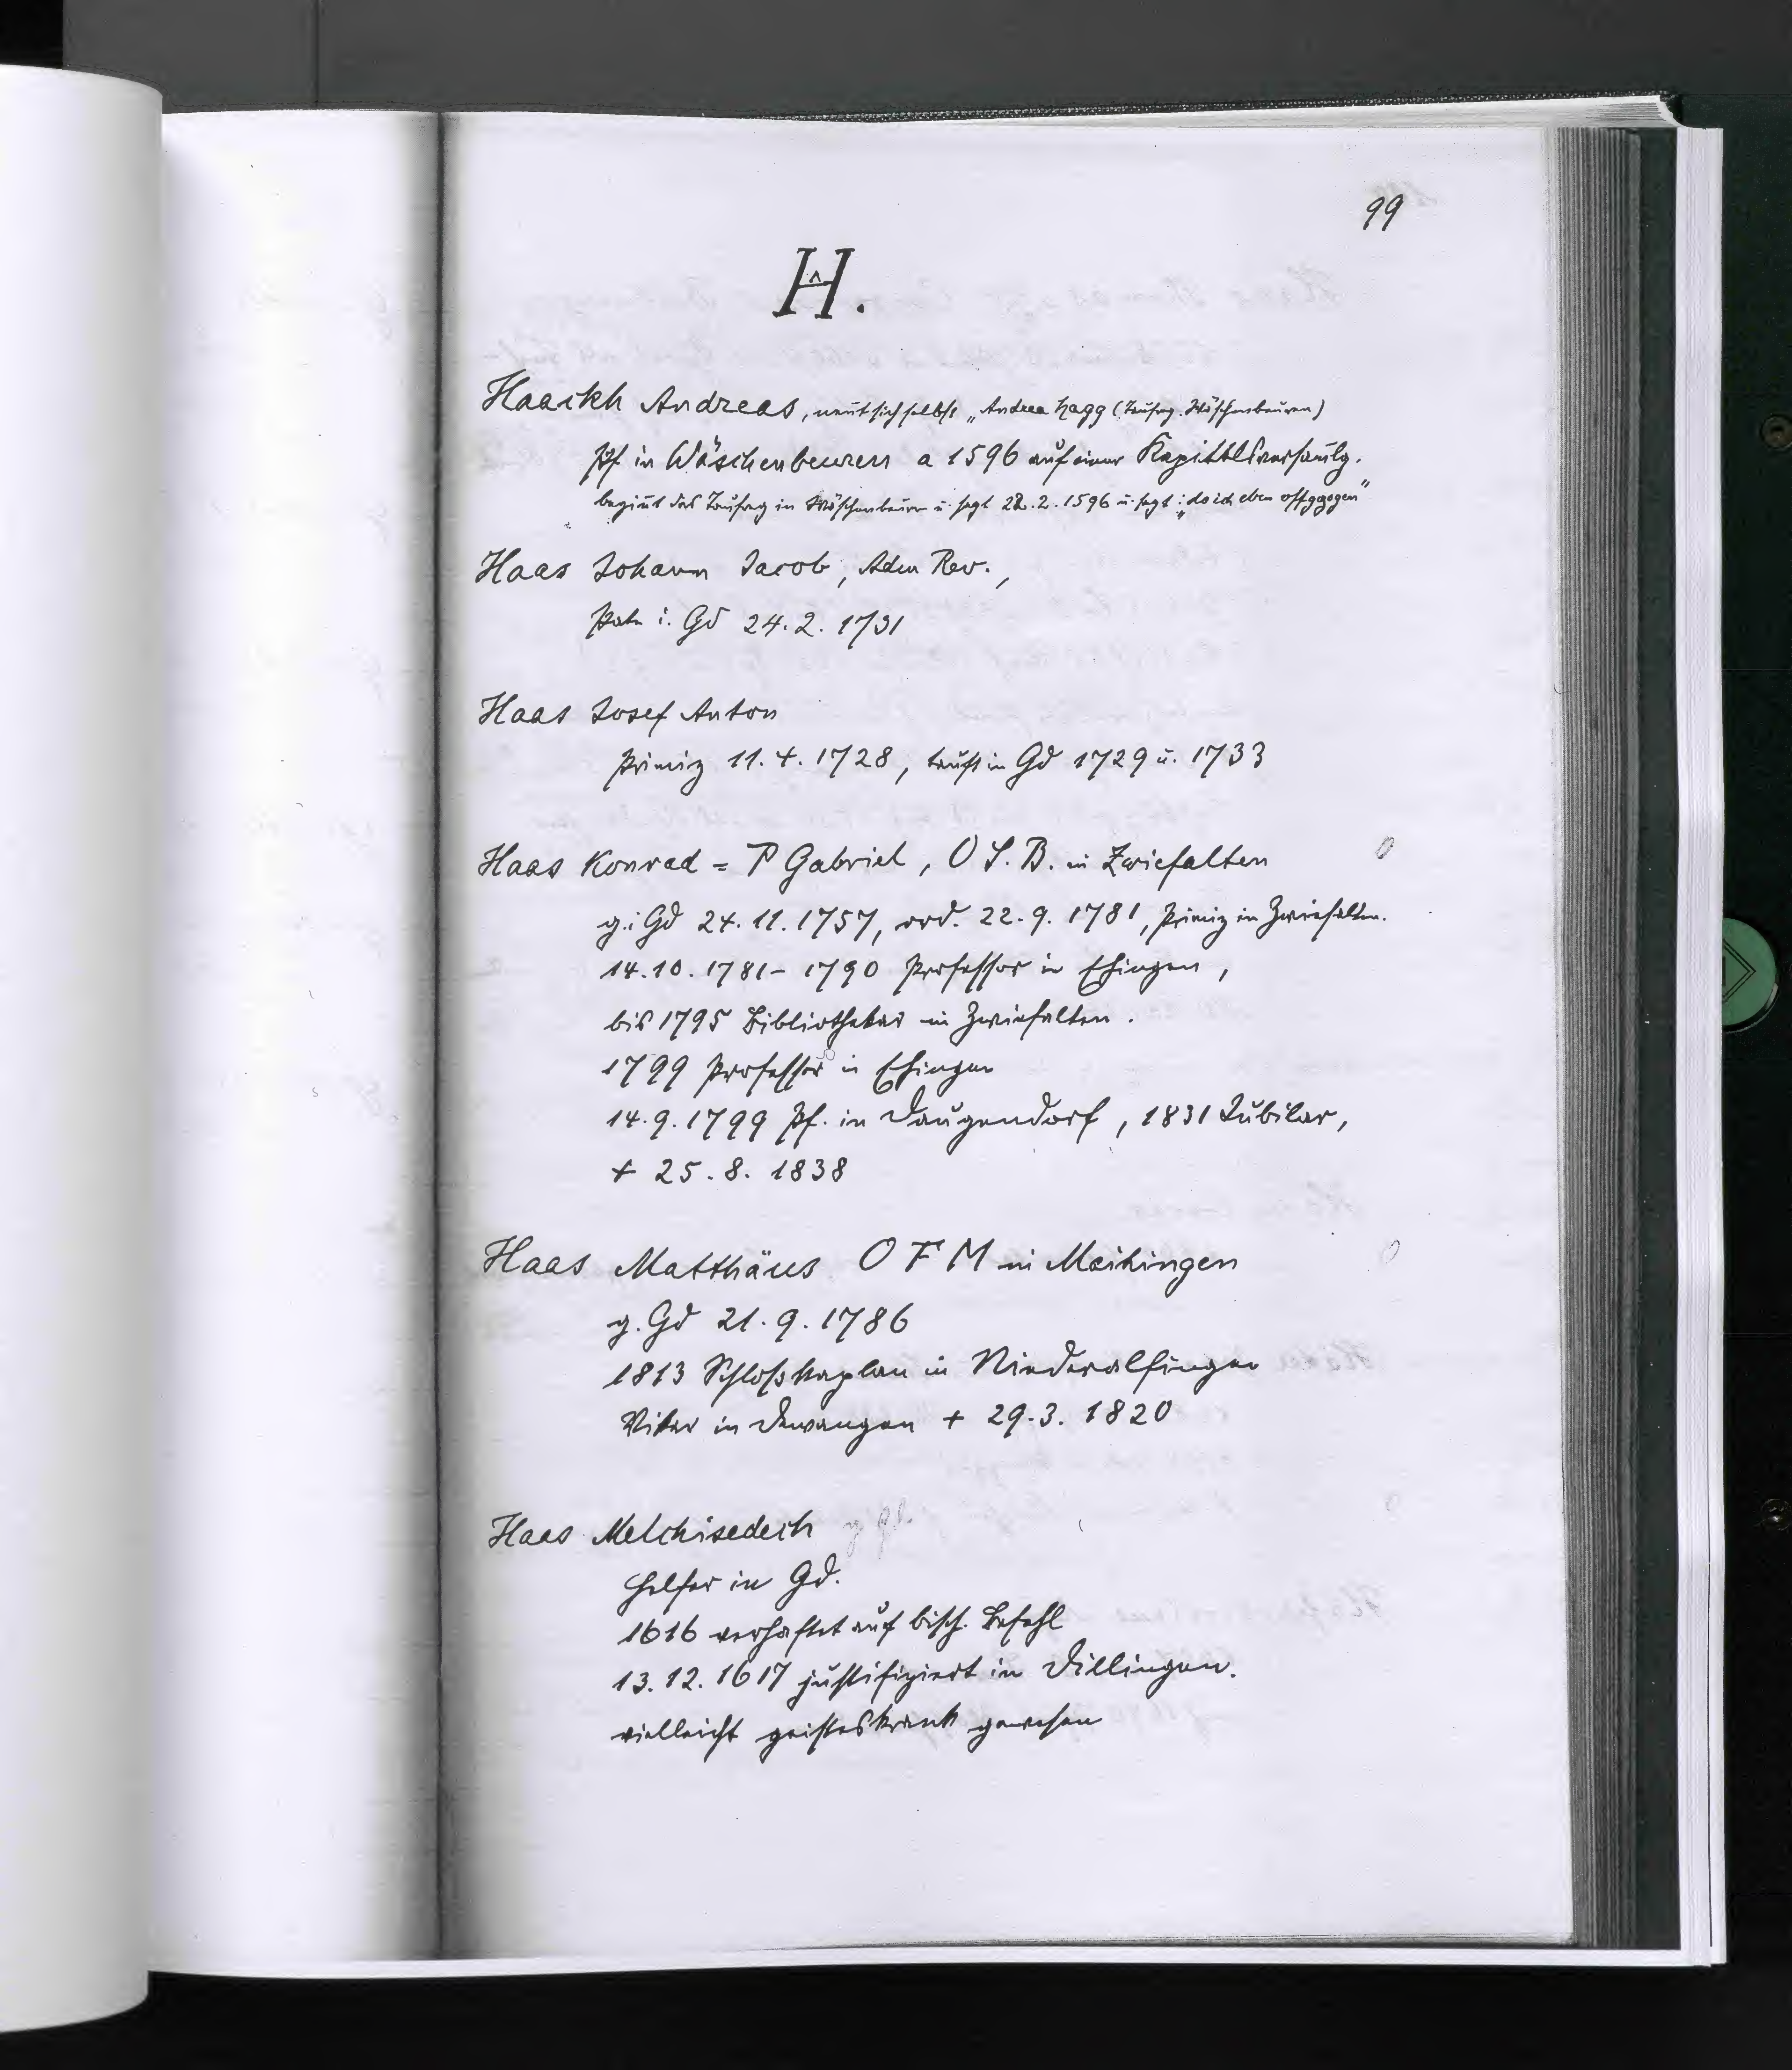 99
H.
Haackh Andreas, nent sich selbst „Andrea Hagg (Taufreg. Wäschenbeuren)
Pf in Wäschenbeuren a 1596 auf einer Kapittelsversamlg.
begint das Taufreg in Wäschenbeuren u. sagt 22.2.1596 u. sagt: „do ich eben offgezogen"
Haas Johann Jacob, Adm Rev.,
Pate i. Gd 24.2.1731
Haas Josef Anton
Primiz 11.4.1728, tauft in Gd 1729 u. 1733
Haas Konrad = P Gabriel, O S. B. in Zwiefalten
g. i Gd 24.11.1757, ord. 22.9.1781, Primiz in Zwiefalten.
14.10.1781 - 1790 Professor in Ehingen,
bis 1795 Bibliothekar in Zwiefalten.
1799 Professor in Ehingen
14.9.1799 Pf. in Daugendorf, 1831 Jubilar,
+ 25.8.1838
Haas Matthäus O F M in Maihingen
g. Gd 21.9.1786
1813 Schlosskaplan in Niederalfingen
Vikar in Dewangen + 29.3.1820
Haas Melchisedech g Gd.
Helfer in Gd.
1616 verhaftet auf bisch. Befehl
13.12.1617 justifiziert in Dillingen.
vielleicht geisteskrank gewesen